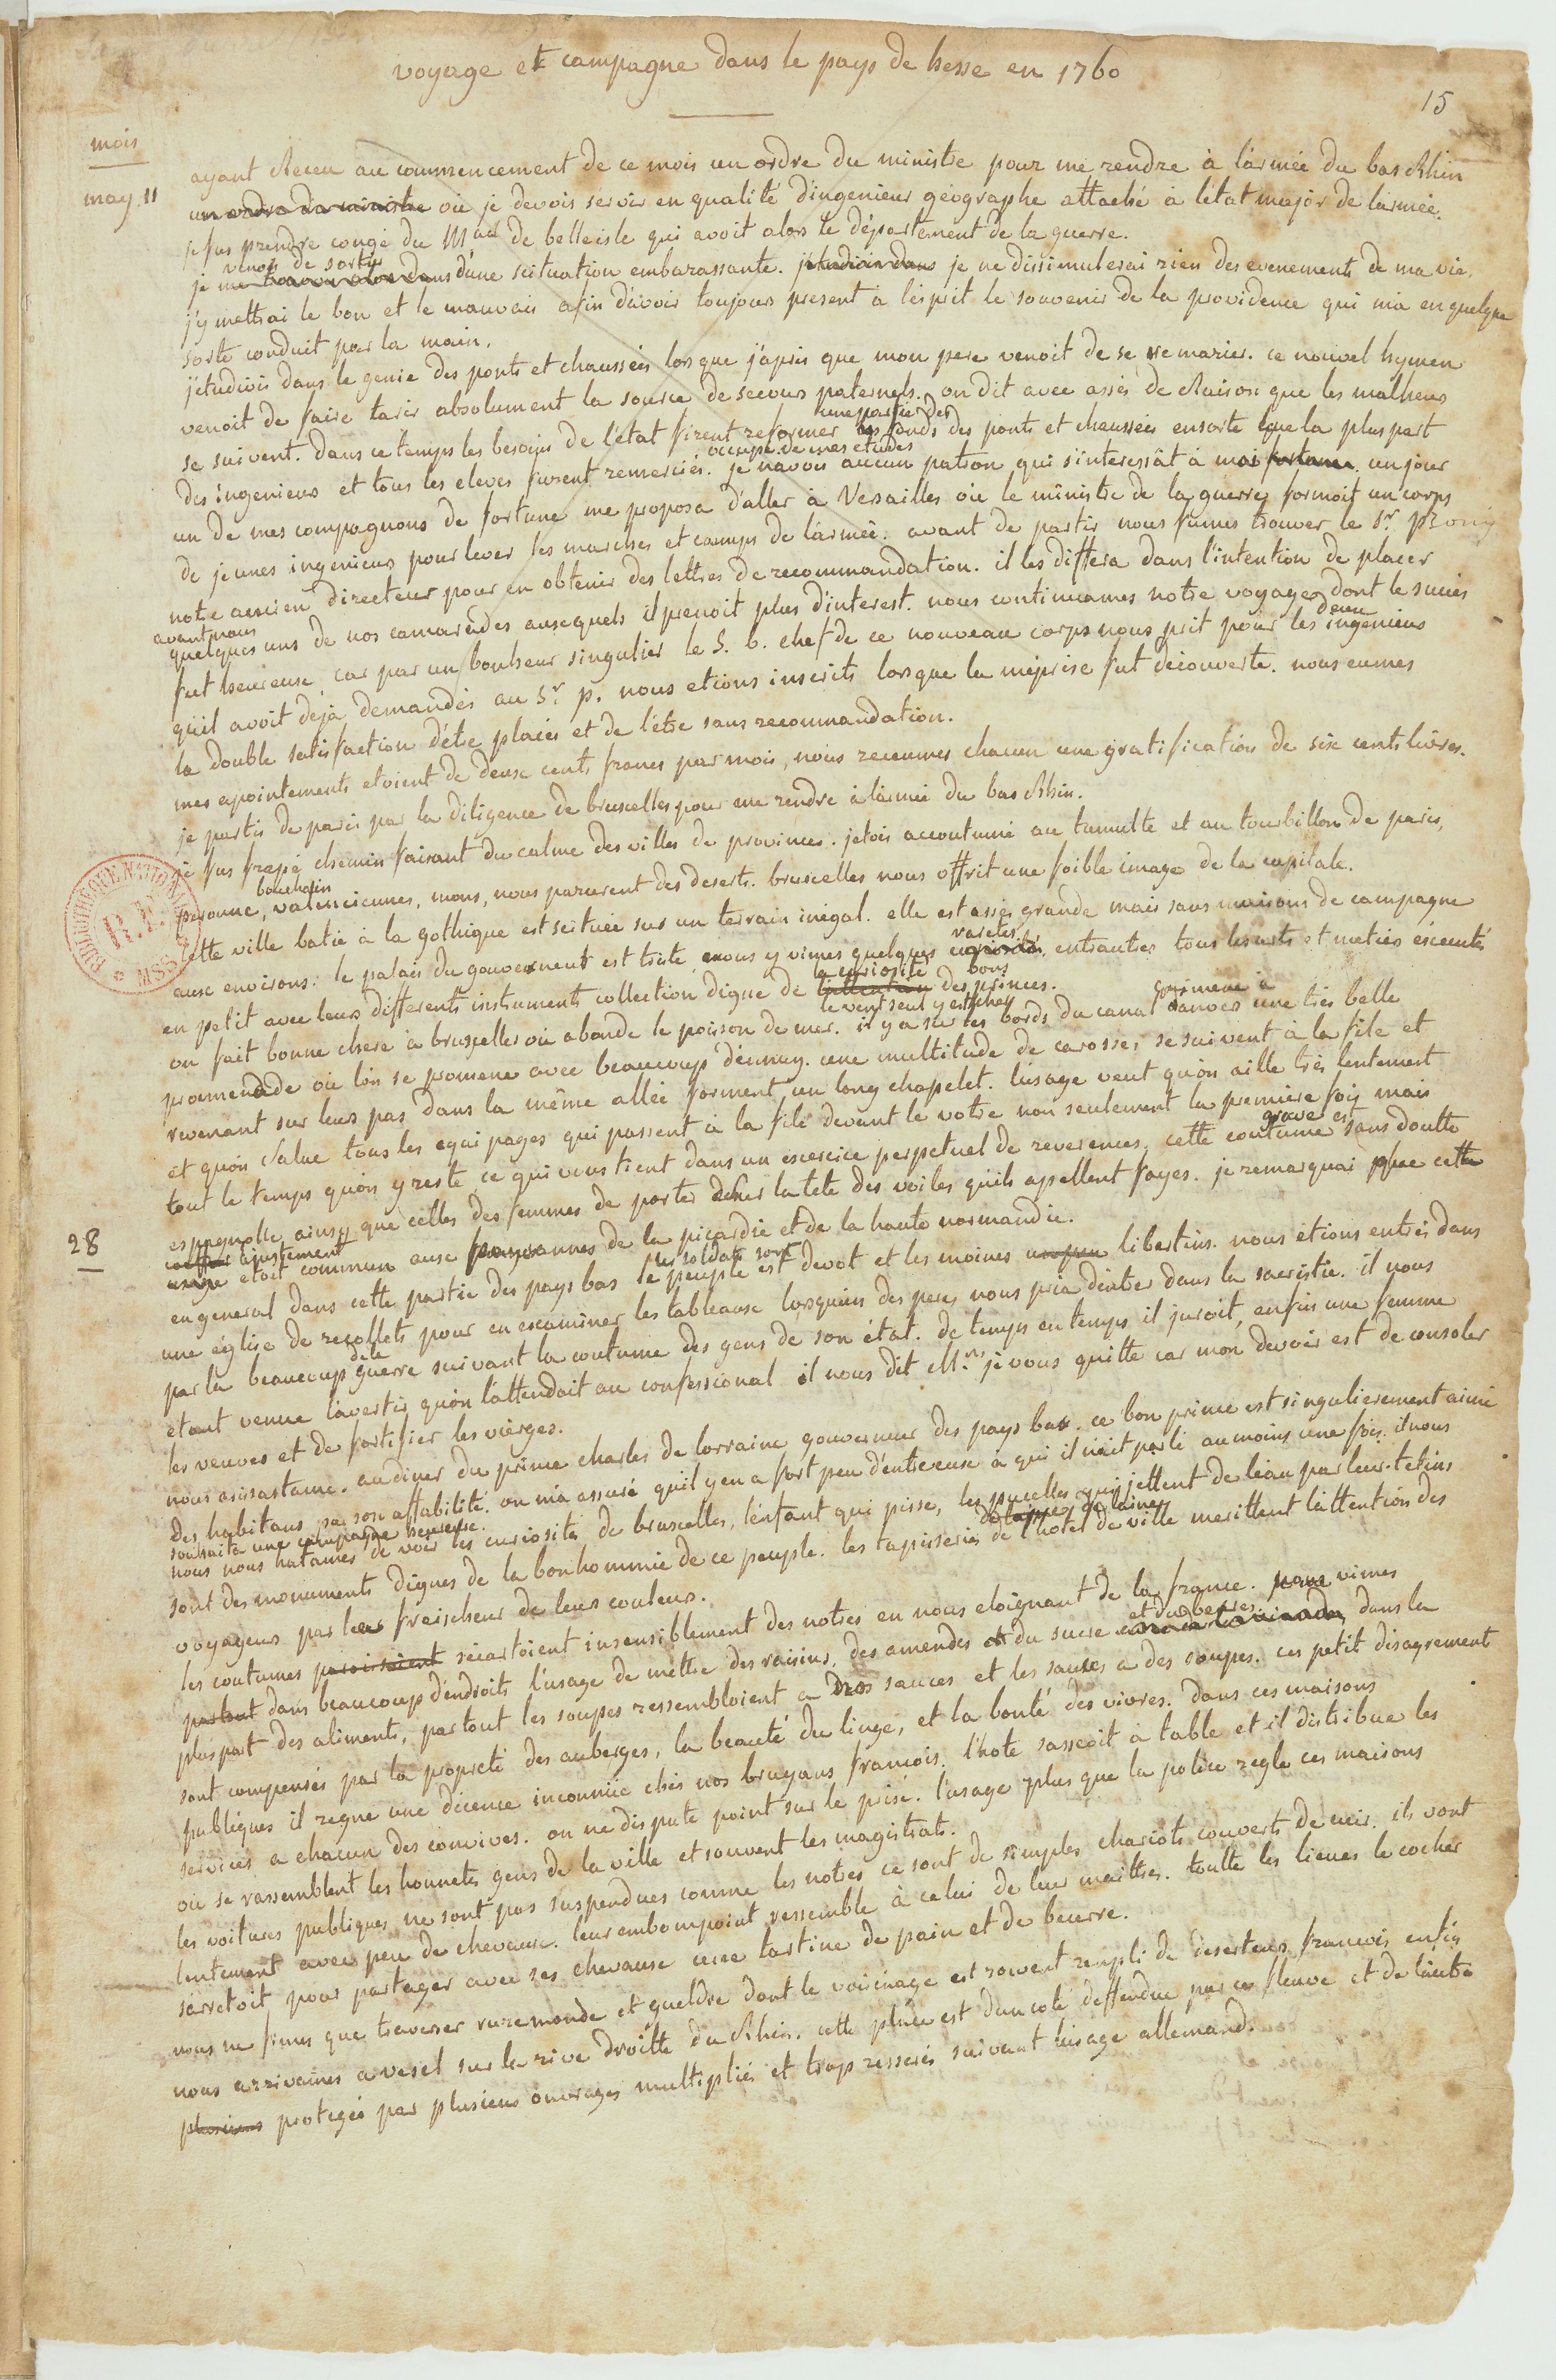 voyage et campagne dans le pays de hesse en 1760
15
mois
may 11
ayant Receu au commencement de ce mois un ordre du ministre pour me rendre à l'armée du bas Rhin
un ordre du ministre où je devois servir en qualité d'ingenieur géographe attaché à l'état major de l'armée.
je fus prendre congé du M.al de belleisle qui avoit alors le département de la guerre.
venois de sortir
je me trouvai alors dans d'une scituation embarassante. j'etudiois dans je ne dissimulerai rien des evenements de ma vie.
j'y mettrai le bon et le mauvais afin d'avoir toujours present à l'esprit le souvenir de la providence qui m'a en quelque
sorte conduit par la main.
j'etudiois dans le genie des ponts et chaussées lorsque j'apris que mon pere venoit de se remarier. ce nouvel hymen
venoit de faire tarir absolument la source de secours paternels. on dit avec assés de Raison que les malheurs
une partie des
se suivent. dans ce temps les besoins de l'état firent reformer les fonds des ponts et chaussées ensorte que la plus part
occupé de mes etudes
des ingenieurs et tous les eleves furent remerciés. je n'avois aucun patron qui s'interessât à moi fortune. un jour
un de mes compagnons de fortune me proposa d'aller à Versailles où le ministre de la guerre formoit un corps
de jeunes ingenieurs pour lever les marches et camps de l'armée. avant de partir nous fumes trouver le S.r
notre ancien directeur pour en obtenir des lettres de recommandation. il les differa dans l'intention de placer
avant nous
quelques uns de nos camarades ausquels il prenoit plus d'interest. nous continuames notre voyage dont le succès
deux
fut heureux, car par un bonheur singulier le S. b. chef de ce nouveau corps nous prit pour les ingenieurs
qu'il avoit deja demandés au S.r p. nous etions inscrits lorsque la méprise fut découverte. nous eumes
la double satisfaction d'être placés et de l'être sans recommandation.
mes apointements etoient de deux cents francs par mois, nous receumes chacun une gratification de six cents livres.
je partis de paris par la diligence de bruxelles pour me rendre à l'armée du bas Rhin.
je fus frapé chemin faisant du calme des villes de province. j'etois accoutumé au tumulte et au tourbillon de paris,
bouchain
peronne, valenciennes, mons, nous parurent des deserts. bruxelles nous offrit une foible image de la capitale.
cette ville batie à la gothique est scituée sur un terrain inégal. elle est assés grande mais sans maisons de campagne
raretés
aux environs. le palais du gouvernement est triste, nous y vimes quelques curiosités, entrautres tous les arts et metiers éxécutés
la curiosité bons
en petit avec leurs differents instruments collection digne de l'attention des princes.
le vent seul y est cher
on fait bonne chere à bruxelles où abonde le poisson de mer. il y a sur les bords du canal d'anvers une très belle
promenade où l'on se promene avec beaucoup d'ennuy. une multitude de carosses se suivent à la file et
revenant sur leurs pas dans la même allée forment un long chapelet. l'usage veut qu'on aille très lentement
et qu'on salue tous les equipages qui passent à la file devant le votre non seulement la premiere fois mais
grave est
tout le temps qu'on y reste ce qui vous tient dans un exercice perpetuel de reverences, cette coutume sans doutte
espagnolle ainsy que celles des femmes de porter sur la tete des voiles qu'ils apellent fayes. je remarquai que cette
ajustement
28
usage etoit commun aux paysannes de la picardie et de la haute normandie.
les soldats sont
en general dans cette partie des pays bas le peuple est devot et les moines un peu libertins. nous etions entrés dans
une église de recollets pour en examiner les tableaux lorsqu'un des peres nous pria d'entrer dans la sacristie. il nous
de la
parla beaucoup guerre suivant la coutume des gens de son état. de temps en temps il juroit, enfin une femme
etant venue l'avertir qu'on l'attendoit au confessional il nous dit M.rs je vous quitte car mon devoir est de consoler
les veuves et de fortifier les vierges.
nous assistames au diner du prince charles de lorraine gouverneur des pays bas. ce bon prince est singulierement aimé
des habitans par son affabilité. on m'a assuré qu'il y en a fort peu d'entreux à qui il n'ait parlé au moins une fois. il nous
souhaita une campagne heureuse.
nous nous hatames de voir les curiosités de bruxelles, l'enfant qui pisse, les pucelles qui jettent de l'eau par leur tetins
sont des monuments dignes de la bonhommie de ce peuple. les tapisseries de l'hotel de ville merittent l'attention des
voyageurs par leur fraischeur de leurs couleurs.
les coutumes paroissoient s'écartoient insensiblement des notres en nous eloignant de la france. nous vimes
et du beurre
partout dans beaucoup d'endroits l'usage de mettre des raisins, des amendes et du sucre dans la
plus part des aliments, partout les soupes ressembloient a nos sauces et les sauces a des soupes. ces petit disagrement
sont compensés par la propreté des auberges, la beauté du linge, et la bonté des vivres. dans ces maisons
publiques il regne une décence inconnüe chés nos bruyans francois. l'hote s'asseoit à table et il distribue les
services a chacun des convives. on ne dispute point sur le prix. l'usage plus que la police regle ces maisons
où se rassemblent les honnetes gens de la ville et souvent les magistrats.
les voitures publiques ne sont pas suspendues comme les notres ce sont de simples chariots couverts de cuir. ils vont
lentement avec peu de chevaux. leur embompoint ressemble à celui de leur maittres. toutte les lieues le cocher
s'arretoit pour partager avec ses chevaux une tartine de pain et de beurre.
nous ne fimes que traverser ruremonde et gueldre dont le voisinage est souvent rempli de deserteurs francois enfin
nous arrivames a vesel sur la rive droitte du Rhin. cette place est d'un coté deffendue par ce fleuve et de l'autre
plusieurs protegée par plusieurs ouvrages multipliés et trop resserés suivant l'usage allemand.
BIBLIOTHEQUE NATIONALE
R.F.
MSS